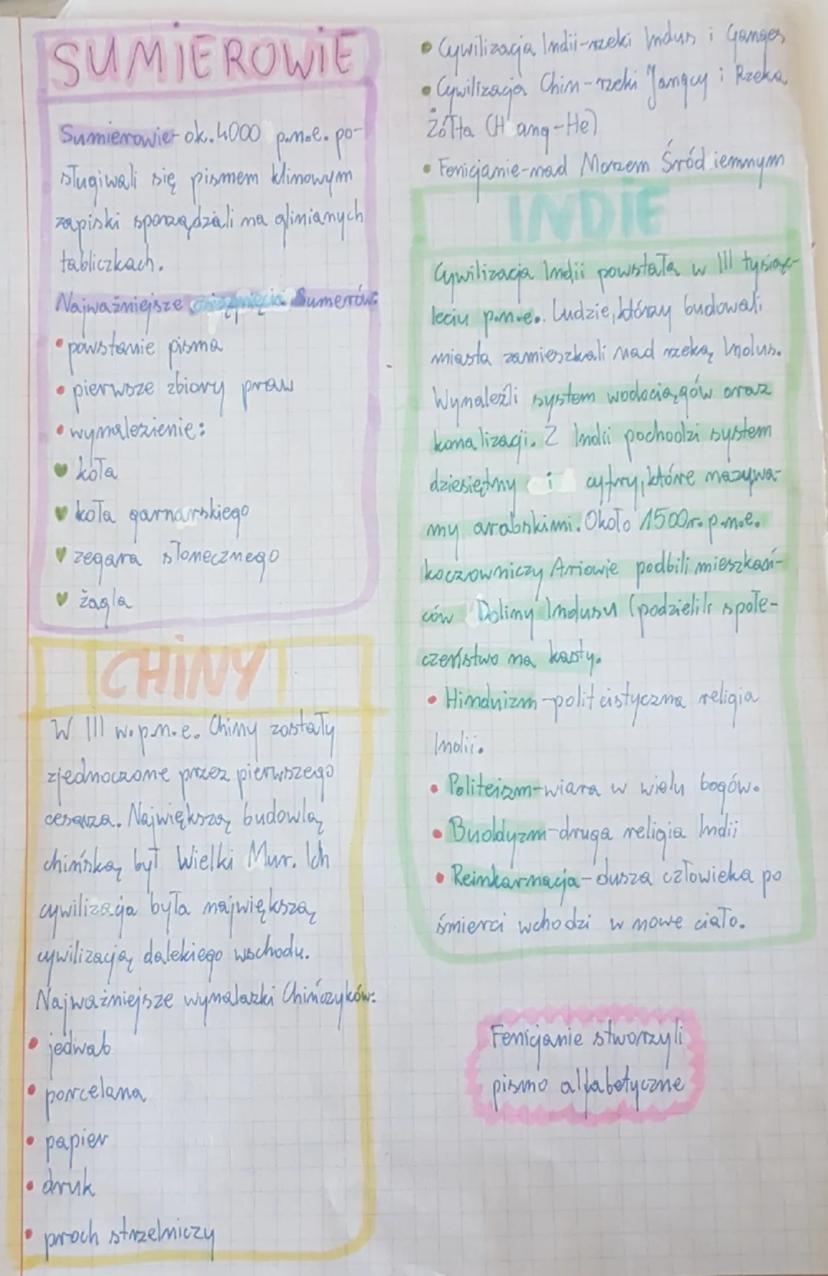 SUMIEROWIE
Sumierowie - ok. 4000 p.n.e. po-
sługiwali się pismem klinowym
zapiski sporządzali na glinianych
tabliczkach.
Najważniejsze osiągnięcia Sumerów:
• powstanie pisma
• pierwsze zbiory praw
• wynalezienie:
♥ koła
♥ koła garnarskiego
♥ zegara słonecznego
♥ żagla
CHINY
W III w.p.n.e. Chiny zostały
zjednoczone przez pierwszego
cesarza. Największą budowlą
chińską był Wielki Mur. Ich
cywilizacja była największą
cywilizacją dalekiego wschodu.
Najważniejsze wynalazki Chińczyków:
• jedwab
• porcelana
• papier
• druk
• proch strzelniczy
• Cywilizacja Indii-rzeki Indus i Ganges
• Cywilizacja Chin-rzeki Jangcy i Rzeka
Żółta (H ang-He)
• Fenicjanie-nad Morzem Śród iemnym
INDIE
Cywilizacja Indii powstała w III tysiąc-
leciu p.n.e. Ludzie, którzy budowali
miasta zamieszkali nad rzeką Indus.
Wynaleźli system wodociągów oraz
kanalizacji. Z Indii pochodzi system
dziesiętny i cyfry, które nazywa-
my arabskimi. Około 1500r. p.n.e.
koczowniczy Ariowie podbili mieszkań-
ców Doliny Indusu (podzielili społe-
czeństwo na kasty.
• Hinduizm-polit eistyczna religia
Indii.
• Politeizm-wiara w wielu bogów.
• Buddyzm-druga religia Indii
• Reinkarnacja-dusza człowieka po
śmierci wchodzi w nowe ciało.
Fenicjanie stworzyli
pismo alfabetyczne